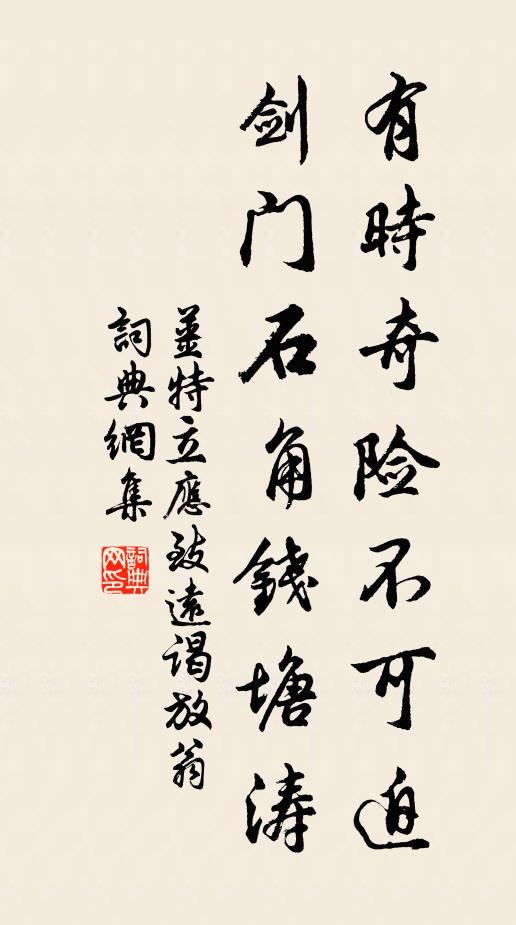 有時奇险不可迫
剑门石角錢塘涛
薑特立應致遠谒放翁
詞典網集
詞典网印